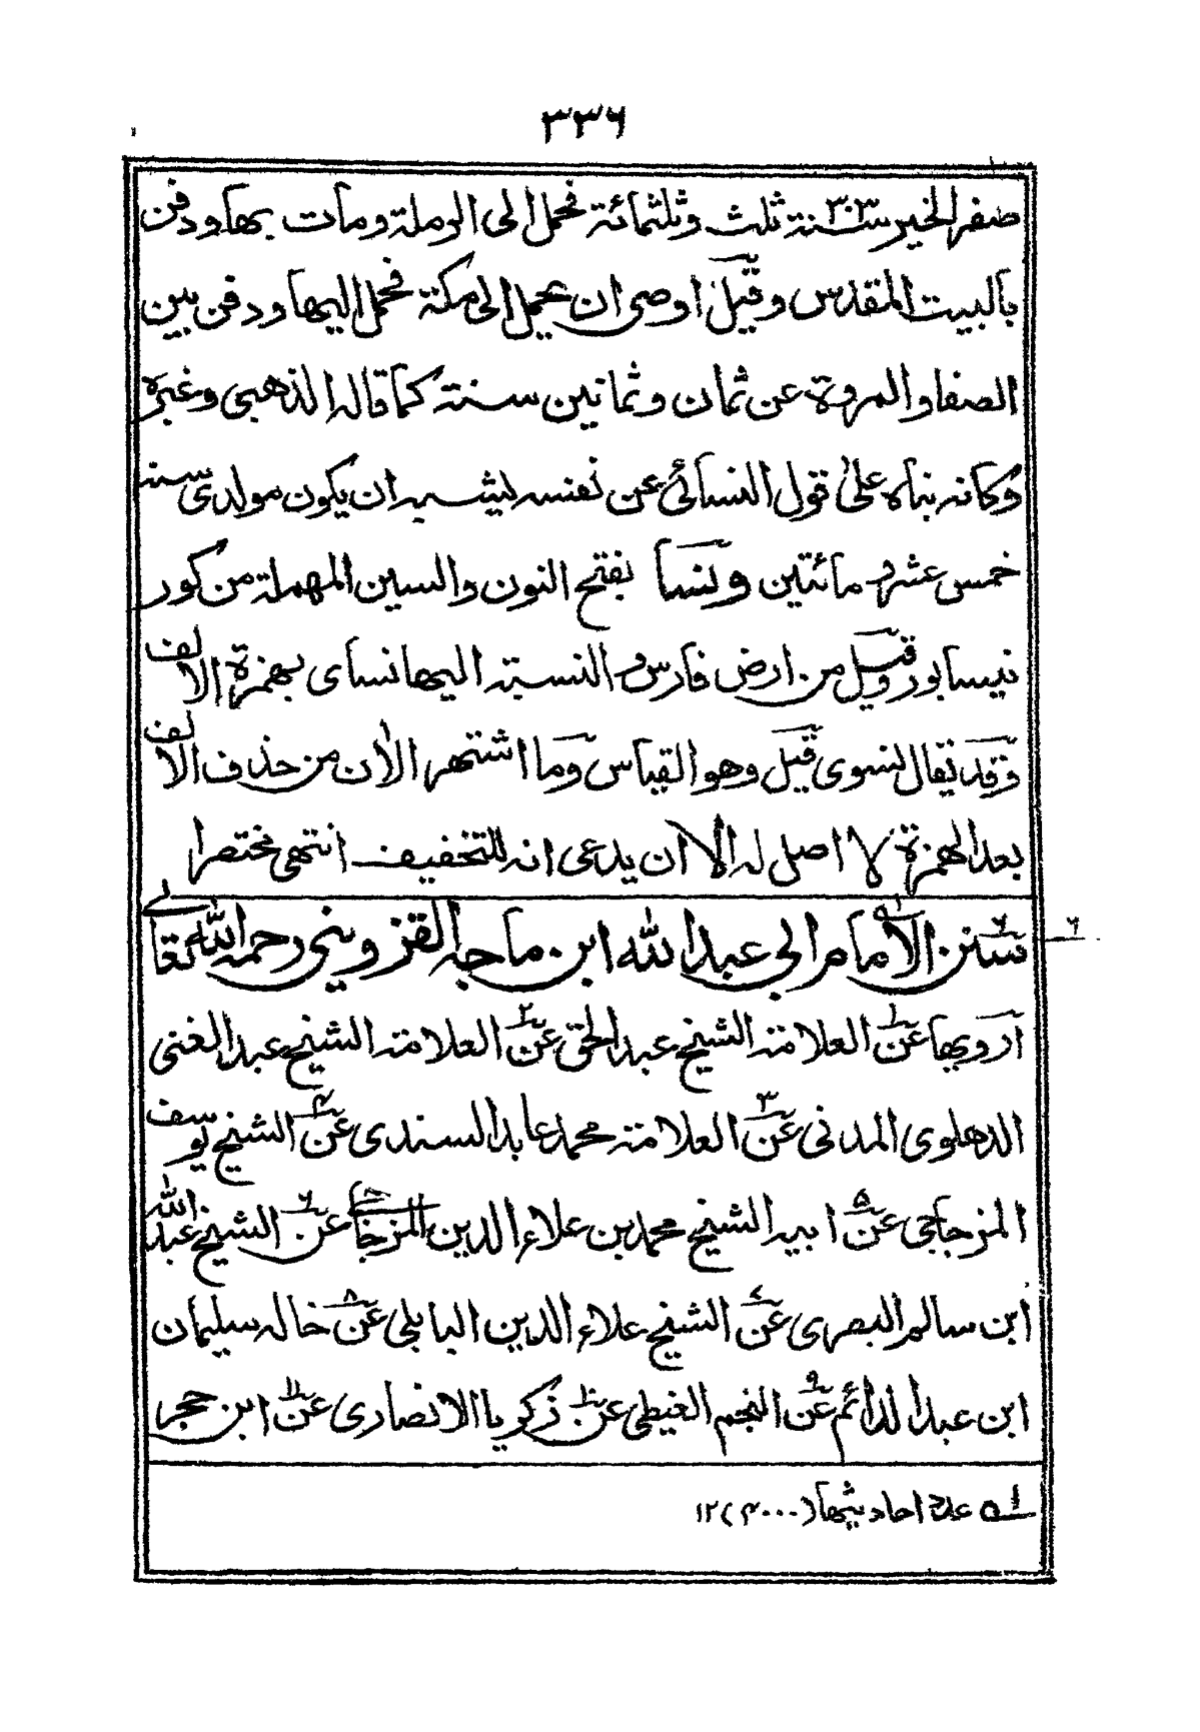 ٣٣٦
صفر الخير سنة ٣٠٣ ثلث وثلثمائة فحمل الى الرملة ومات بها ودفن
بالبيت المقدس وقيل اوصى ان يحمل الى مكة فحمل اليها ودفن بين
الصفا والمروة عن ثمان وثمانين سنة كما قاله الذهبى وغيره
وكانه بناه على قول النسائى عن نفسه ليشبه ان يكون مولدى سنة
خمس عشر ومائتين ونسا بفتح النون والسين المهملة من كور
نيسابور وقيل من ارض فارس والنسبة اليها نساى بهمزة الالف
وقد يقال نسوى قيل وهو القياس وما اشتهر الان من حذف الالف
بعد الهمزة لا اصل له الا ان يدعى انه للتخفيف انتهى مختصرا
٦
سنن الامام ابى عبد الله ابن ماجه القزوينى رحمه الله تعالى
ارويها عن١ العلامة الشيخ عبد الحق عن٢ العلامة الشيخ عبد الغنى
الدهلوى المدنى عن٣ العلامة محمد عابد السندى عن٤ الشيخ يوسف
المزجاجى عن٥ ابيه الشيخ محمد بن علاء الدين المزجاجى عن٦ الشيخ عبد الله
ابن سالم البصرى عن٧ الشيخ علاء الدين البابلى عن٨ خاله سليمان
ابن عبد الدائم عن٩ النجم الغيطى عن١٠ زكريا الانصارى عن١١ ابن حجر
١ه عدة احاديثها (٤٠٠٠) ١٢